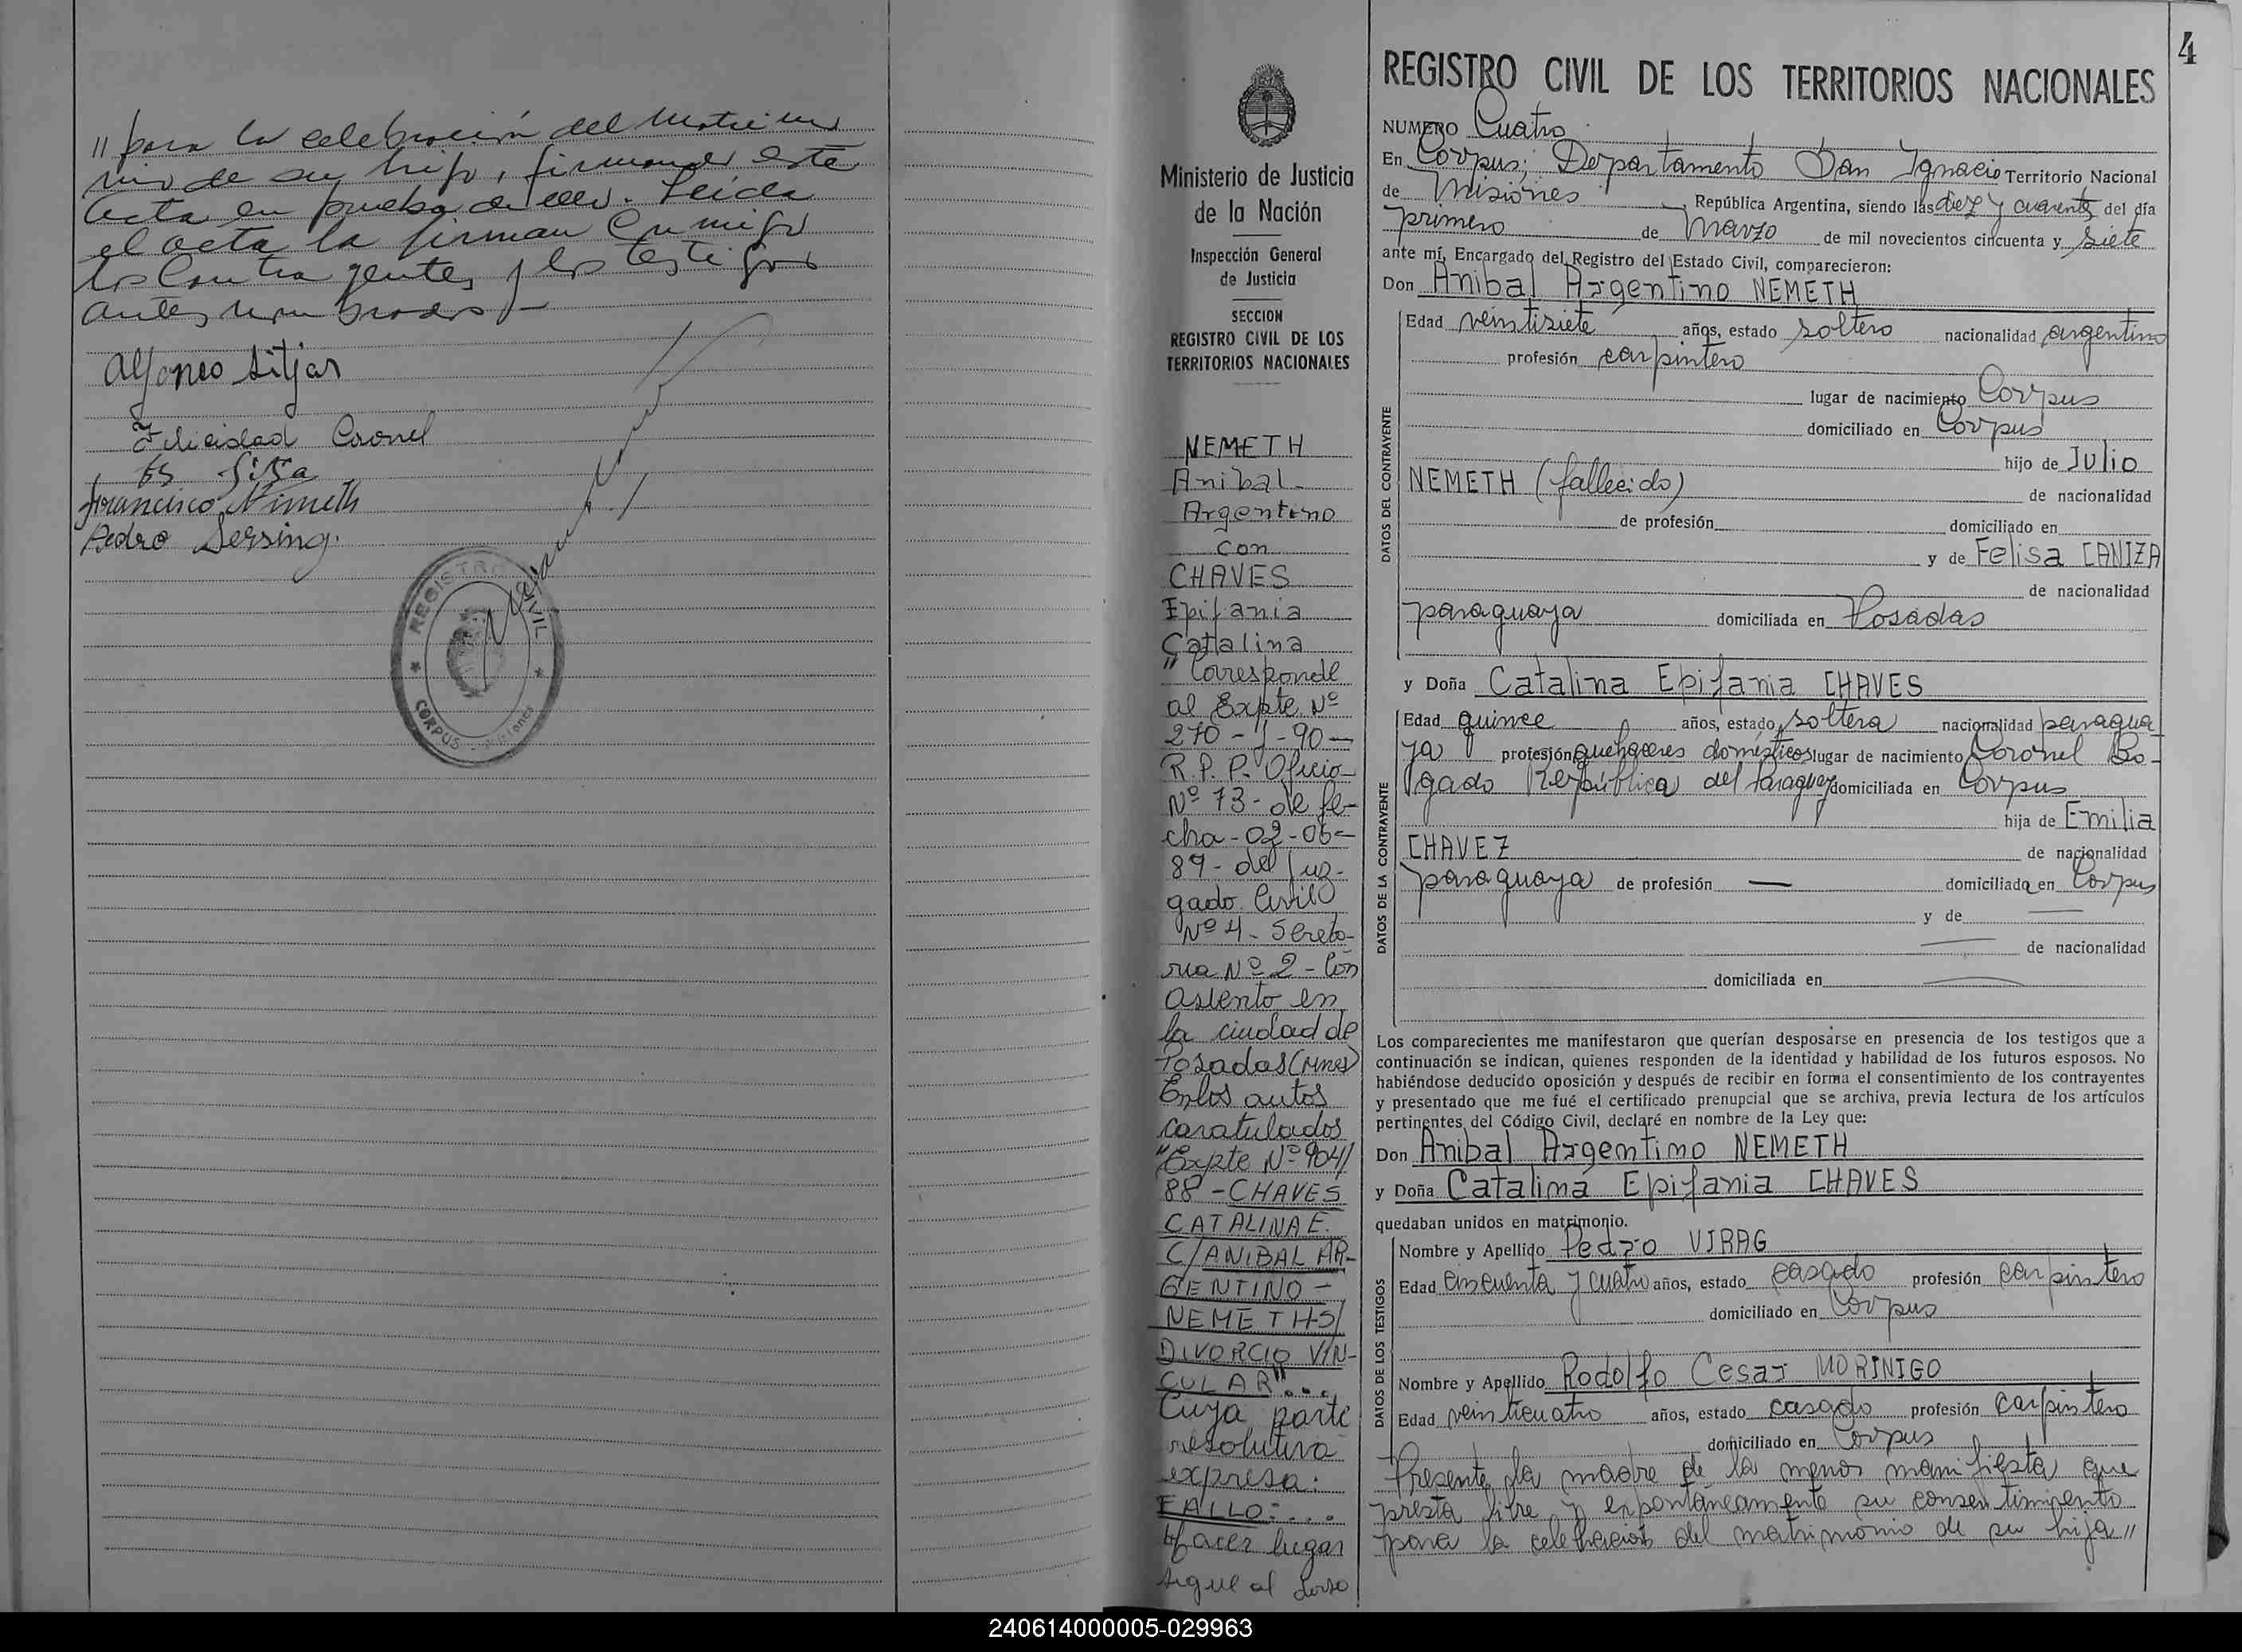 " para la celebración del matrimo
nio de su hijo, firmando este
acta en prueba de ello. Leida
el acta la firman conmigo
los contrayentes y los testigos
antes nombrados.-
Alfonso Sitjar
Felicidad Coronel
Francisco Nemeth
Pedro Dersing.
REGISTRO CIVIL
CORPUS - Misiones
4
Ministerio de Justicia
de la Nación
Inspección General
de Justicia
SECCION
REGISTRO CIVIL DE LOS
TERRITORIOS NACIONALES
NEMETH
Anibal
Argentino
con
CHAVES
Epifania
Catalina
"Corresponde
al Expte Nº
270-J-90-
R.P.P. Oficio
Nº 73-de fe-
cha-02-06-
89-del Juz-
gado Civil
Nº 4-Secreta-
ria Nº 2-Con
asiento en
la ciudad de
Posadas (Mnes)
En los autos
caratulados
"Expte Nº 904/
88-CHAVES
CATALINA E.
C/ANIBAL AR-
GENTINO-
NEMETH-S/
DIVORCIO VIN-
CULAR"...
Cuya parte
resolutiva
expresa:
FALLO:...
Hacer lugar
sigue al dorso
REGISTRO CIVIL DE LOS TERRITORIOS NACIONALES
NUMERO Cuatro
En Corpus; Departamento San Ignacio Territorio Nacional
de Misiones, República Argentina, siendo las diez y cuarenta del día
primero de Marzo de mil novecientos cincuenta y siete
ante mí, Encargado del Registro del Estado Civil, comparecieron:
Don Anibal Argentino NEMETH
DATOS DEL CONTRAYENTE
Edad veintisiete años, estado soltero nacionalidad argentino
profesión carpintero
lugar de nacimiento Corpus
domiciliado en Corpus
hijo de Julio
NEMETH (fallecido) de nacionalidad
de profesión domiciliado en
y de Felisa CANIZA
de nacionalidad
paraguaya domiciliada en Posadas
y Doña Catalina Epifania CHAVES
DATOS DE LA CONTRAYENTE
Edad quince años, estado soltera nacionalidad paragua
ya profesión quehaceres domésticos lugar de nacimiento Coronel Bo-
gado República del Paraguay domiciliada en Corpus
hija de Emilia
CHAVEZ de nacionalidad
paraguaya de profesión — domiciliada en Corpus
y de —
— de nacionalidad
domiciliada en —
Los comparecientes me manifestaron que querían desposarse en presencia de los testigos que a
continuación se indican, quienes responden de la identidad y habilidad de los futuros esposos. No
habiéndose deducido oposición y después de recibir en forma el consentimiento de los contrayentes
y presentado que me fué el certificado prenupcial que se archiva, previa lectura de los artículos
pertinentes del Código Civil, declaré en nombre de la Ley que:
Don Anibal Argentino NEMETH
y Doña Catalina Epifania CHAVES
quedaban unidos en matrimonio.
DATOS DE LOS TESTIGOS
Nombre y Apellido Pedro VIRAG
Edad cincuenta y cuatro años, estado casado profesión carpintero
domiciliado en Corpus
Nombre y Apellido Rodolfo Cesar MORINIGO
Edad veinticuatro años, estado casado profesión carpintero
domiciliado en Corpus
Presente la madre de la menor manifiesta que
presta libre y espontáneamente su consentimiento
para la celebración del matrimonio de su hija "
240614000005-029963